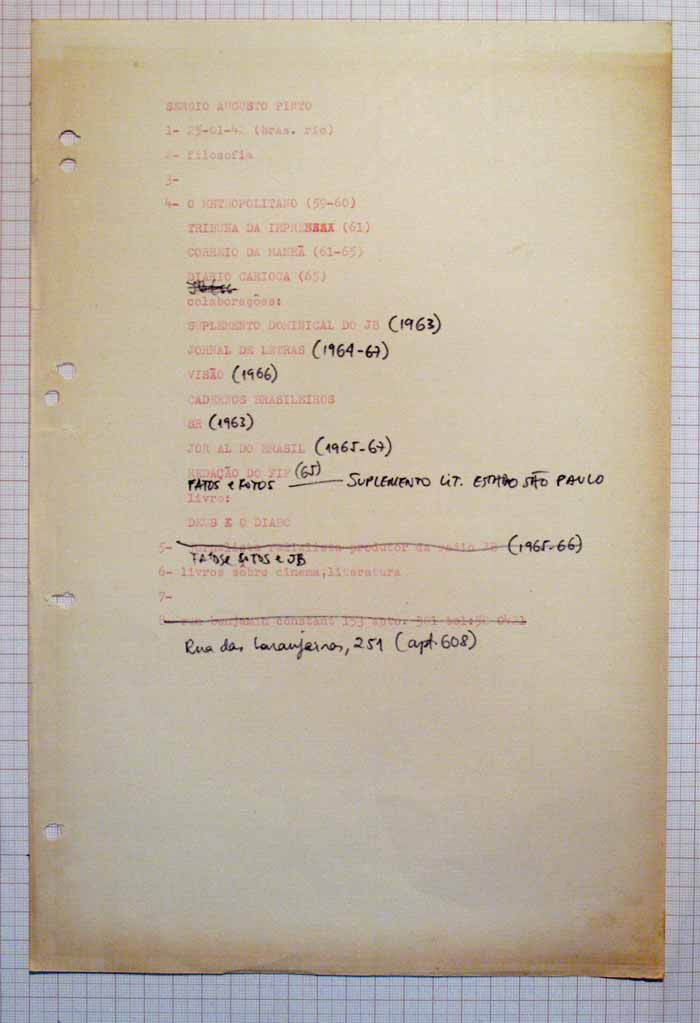 SERGIO AUGUSTO PINTO
1- 25-01-42 (bras. rio)
2- filosofia
3-
4- O METROPOLITANO (59-60)
TRIBUNA DA IMPRENSA (61)
CORREIO DA MANHÃ (61-65)
DIARIO CARIOCA (65)
colaborações:
SUPLEMENTO DOMINICAL DO JB (1963)
JORNAL DE LETRAS (1964-67)
VISÃO (1966)
CADERNOS BRASILEIROS
SR (1963)
JOR AL DO BRASIL (1965-67)
REDAÇÃO DO FIF (65)
FATOS e FOTOS — SUPLEMENTO LIT. ESTADO SÃO PAULO
livro:
DEUS E O DIABO
5- jornalista produtor da rádio JB (1965-66)
FATOS e FOTOS e JB
6- livros sôbre cinema, literatura
7-
8- rua benjamin constant 153 apto. 301 tel:
Rua das Laranjeiras, 251 (apt. 608)